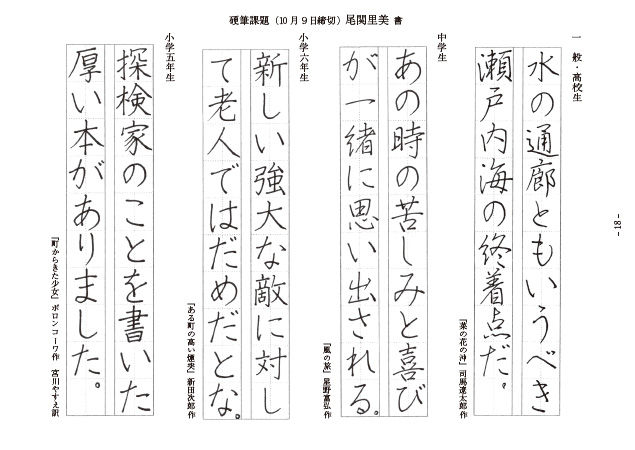 硬筆課題（10月９日締切）尾関里美 書
一般・高校生
水の通廊ともいうべき
瀬戸内海の終着点だ。
『菜の花の沖』司馬遼太郎作
中学生
あの時の苦しみと喜び
が一緒に思い出される。
『風の旅』星野富弘作
小学六年生
新しい強大な敵に対し
て老人ではだめだとな。
『ある町の高い煙突』新田次郎作
小学五年生
探検家のことを書いた
厚い本がありました。
『町からきた少女』ボロンコーワ作　宮川やすえ訳
- 18 -